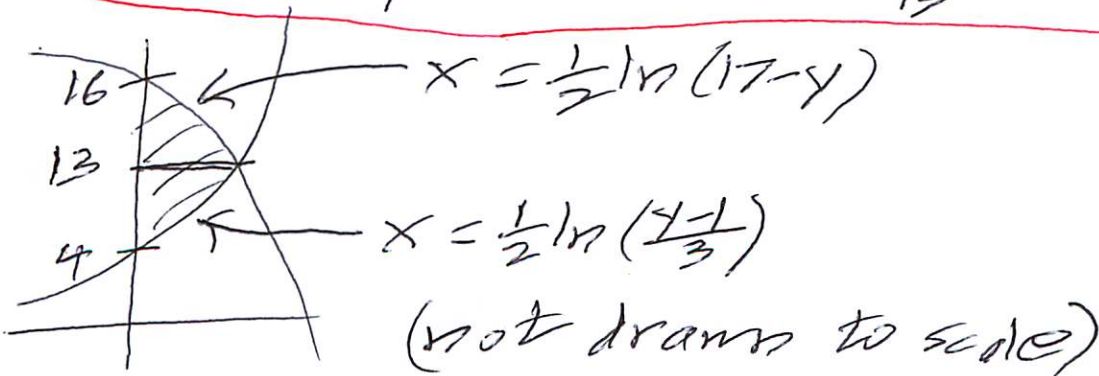 16
x = 1/2 ln(17-y)
13
x = 1/2 ln((y-1)/3)
4
(not drawn to scale)